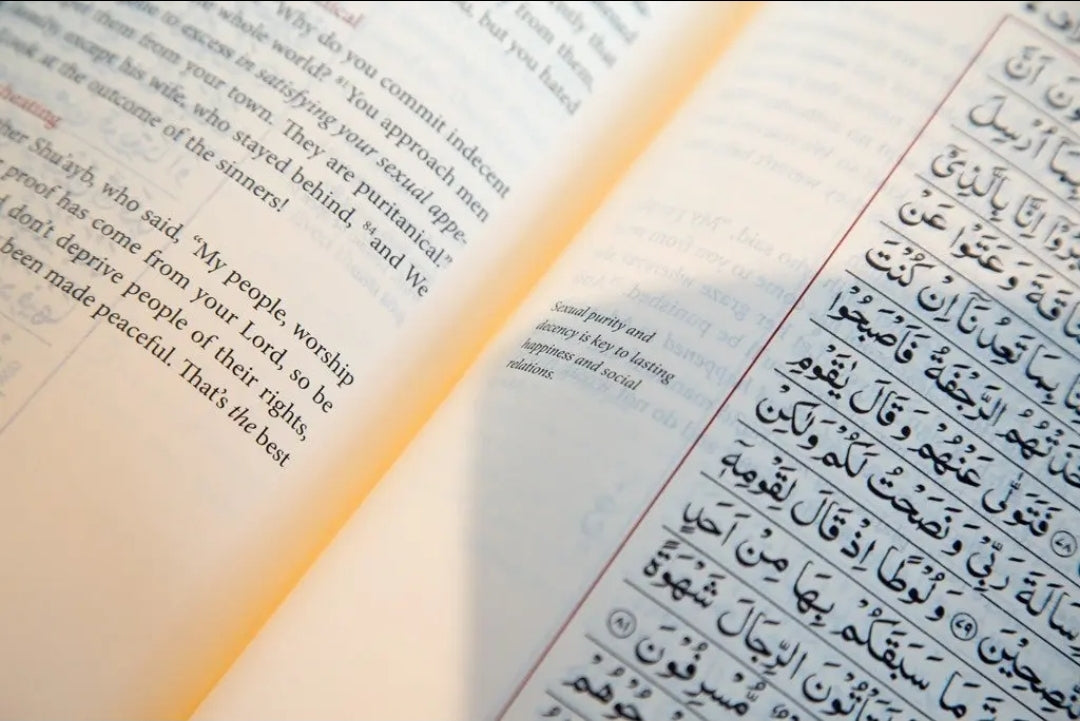 but you hated
from them,
that
“Why do you commit indecent
whole world? ⁸¹You approach men
to excess in satisfying your sexual appe-
them from your town. They are puritanical.”
except his wife, who stayed behind, ⁸⁴and We
at the outcome of the sinners!
cheating
Shu'ayb, who said, “My people, worship
proof has come from your Lord, so be
don't deprive people of their rights,
been made peaceful. That's the best
Sexual purity and
decency is key to lasting
happiness and social
relations.
اَنَّ
بِمَآ اُرْسِلَ
اِنَّا بِالَّذِىْٓ
وَعَتَوْا عَنْ
بِمَا تَعِدُنَآ اِنْ كُنْتَ
الرَّجْفَةُ فَاَصْبَحُوْا
٧٨ فَتَوَلّٰى عَنْهُمْ وَقَالَ يٰقَوْمِ
رِسَالَةَ رَبِّىْ وَنَصَحْتُ لَكُمْ وَلٰكِنْ
النّٰصِحِيْنَ ٧٩ وَلُوْطًا اِذْ قَالَ لِقَوْمِهٖٓ
مَا سَبَقَكُمْ بِهَا مِنْ اَحَدٍ
الرِّجَالَ شَهْوَةً
مُّسْرِفُوْنَ ٨١